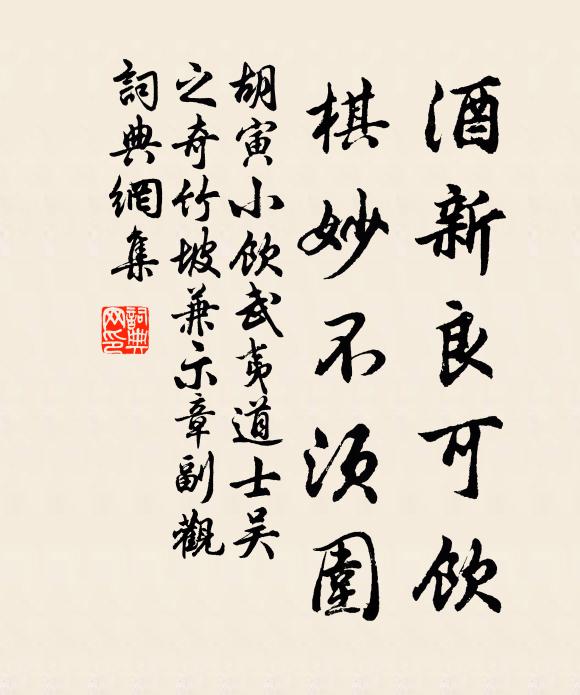 酒新良可飲
棋妙不須圍
胡寅小飲武夷道士吴
之奇竹坡兼示章副觀
詞典網集
詞典
网印